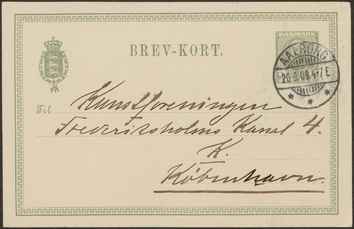 BREV-KORT.
DANMARK
AALBORG
Til Kunstforeningen
Frederiksholms Kanal 4.
K.
København.